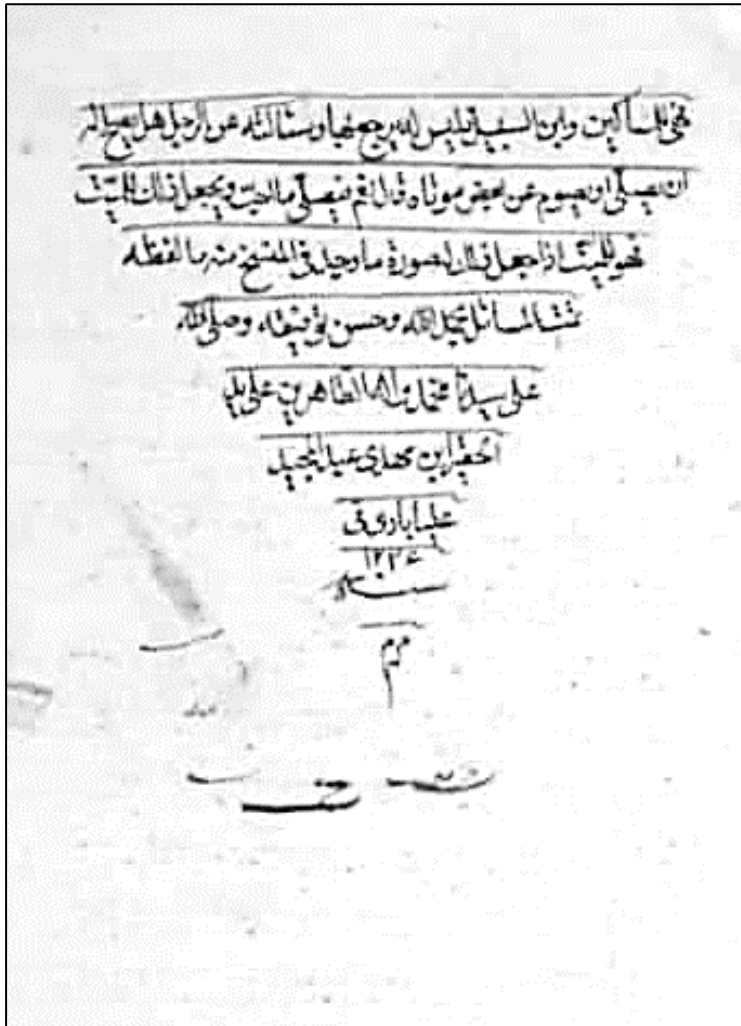 فهي للمساكين وابن السبيل فليس له يرجع فيها وسئالته عن الرجل هل يصح له
ان يصلى او يصوم عن بعض موتاه قال نعم فيصلى ما احب ويجعل ذلك للميت
فهو للميت اذا جعل ذلك له صورة ما وجد في المنتسخ منه ما لفظه
تمت المسائل بحمد الله وحسن توفيقه وصلى الله
على سيدنا محمد واله الطاهرين على يد
احقر ابن مهدى عبد المجيد
علىابادى فى
١٢٣٤
سنه
م م م